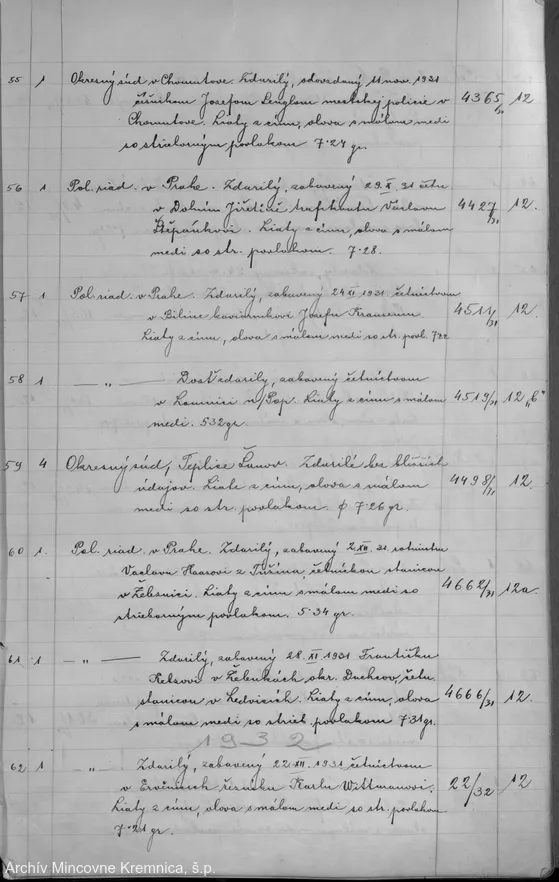 55 1 Okresný súd v Chomutove. Zdarilý, odovzdaný 11 nov. 1931
čišníkom Josefom Lenglom mestskej polície v 4365/31 12
Chomutove. Liaty z cínu, olova s málom medi
so strieborným povlakom 7·24 gr.
56 1 Pol. riad. v Prahe. Zdarilý, zabavený 29.X.31 četn.
v Dolním Jiřetíně trafikantu Václavu 4427/31 12.
Štěpánkovi. Liaty z cínu, olova s málom
medi so str. povlakom. 7·28.
57 1 Pol. riad. v Prahe. Zdarilý, zabavený 24 XI 1931 četníctvom
v Bíline kaviarníkovi Josefu 4511/31 12.
Liaty z cínu, olova s málom medi so str. povl. 7·22
58 1 — „ — Dosť zdarilý, zabavený četníctvom
v Lomnici n/Pop. Liaty z cínu s málom 4519/31 12 „b"
medi. 5·32 gr.
59 4 Okresný súd, Teplice Šanov. Zdarilé bez bližších
údajov. Liate z cínu, olova s málom 4498/31 12.
medi so str. povlakom. ϕ 7·26 gr.
60 1. Pol. riad. v Prahe. Zdarilý, zabavený 2.XII.31 rolníku
Václavu z Tužína, četníckou stanicou 4662/31 12a.
v Železnici. Liaty z cínu s málom medi so
strieborným povlakom. 5·34 gr.
61 1 — „ — Zdarilý, zabavený 28. XI 1931 Františku
v Želénkách okr. Duchcov, četn.
stanicou v Ledvicích. Liaty z cínu, olova 4666/31 12.
s málom medi so strieb. povlakom 7·31 gr.
1932
62 1 — „ — Zdarilý, zabavený 22.XII.1931 četníctvom
v Ervěnicích řezníku Karlu Wittmanovi. 22/32 12
Liaty z cínu, olova s málom medi so str. povlakom
7·21 gr.
Archív Mincovne Kremnica, š.p.